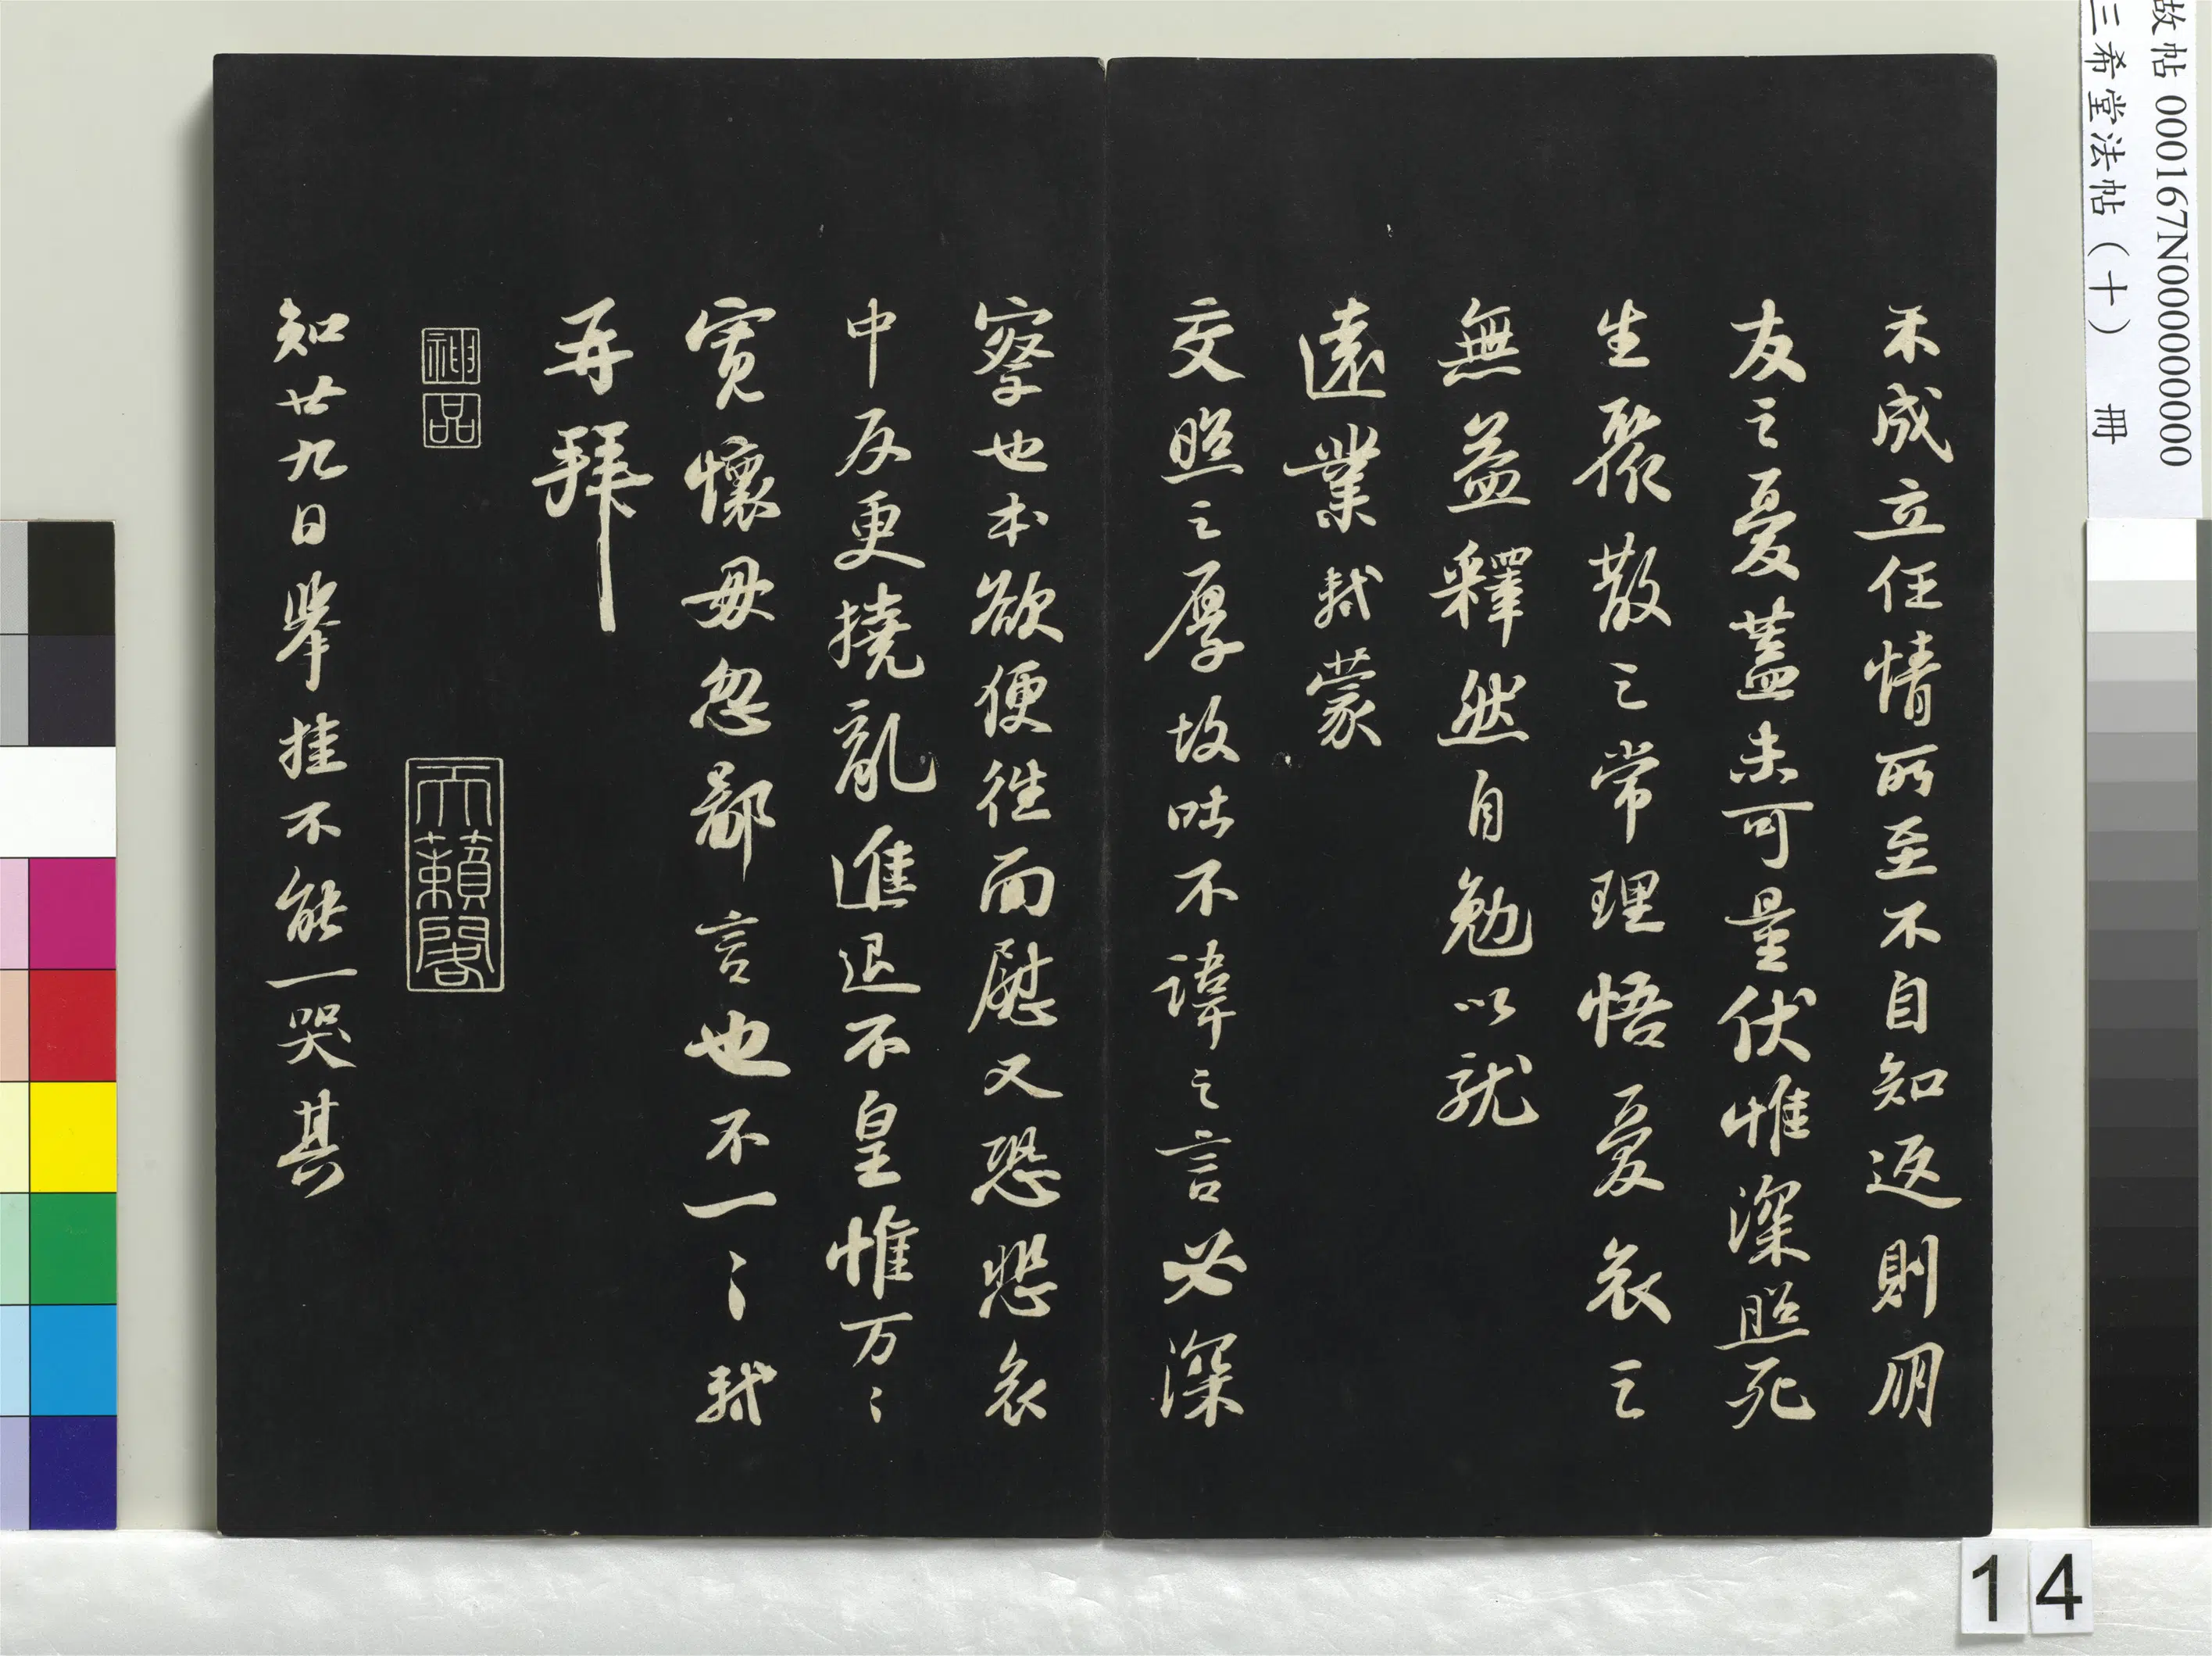 故帖 000167N000000000
三希堂法帖（十） 冊
不成立任情所至不自知返則朋
友之憂蓋未可量伏惟深照死
生聚散之常理悟憂哀之
無益釋然自勉以就
遠業軾蒙
交照之厚故吐不諱之言必深
察也本欲便往面慰又恐悲哀
中反更撓亂進退不皇惟万〻
寬懷毋忽鄙言也不一〻軾
再拜
神品
天籟閣
知廿九日舉挂不能一哭其
14